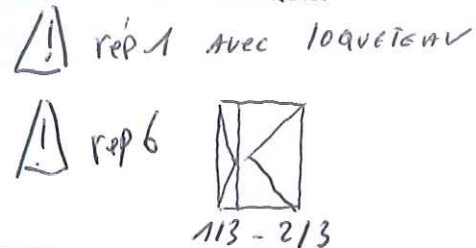 ! rép 1 avec loqueteau
! rep 6
1/3 - 2/3